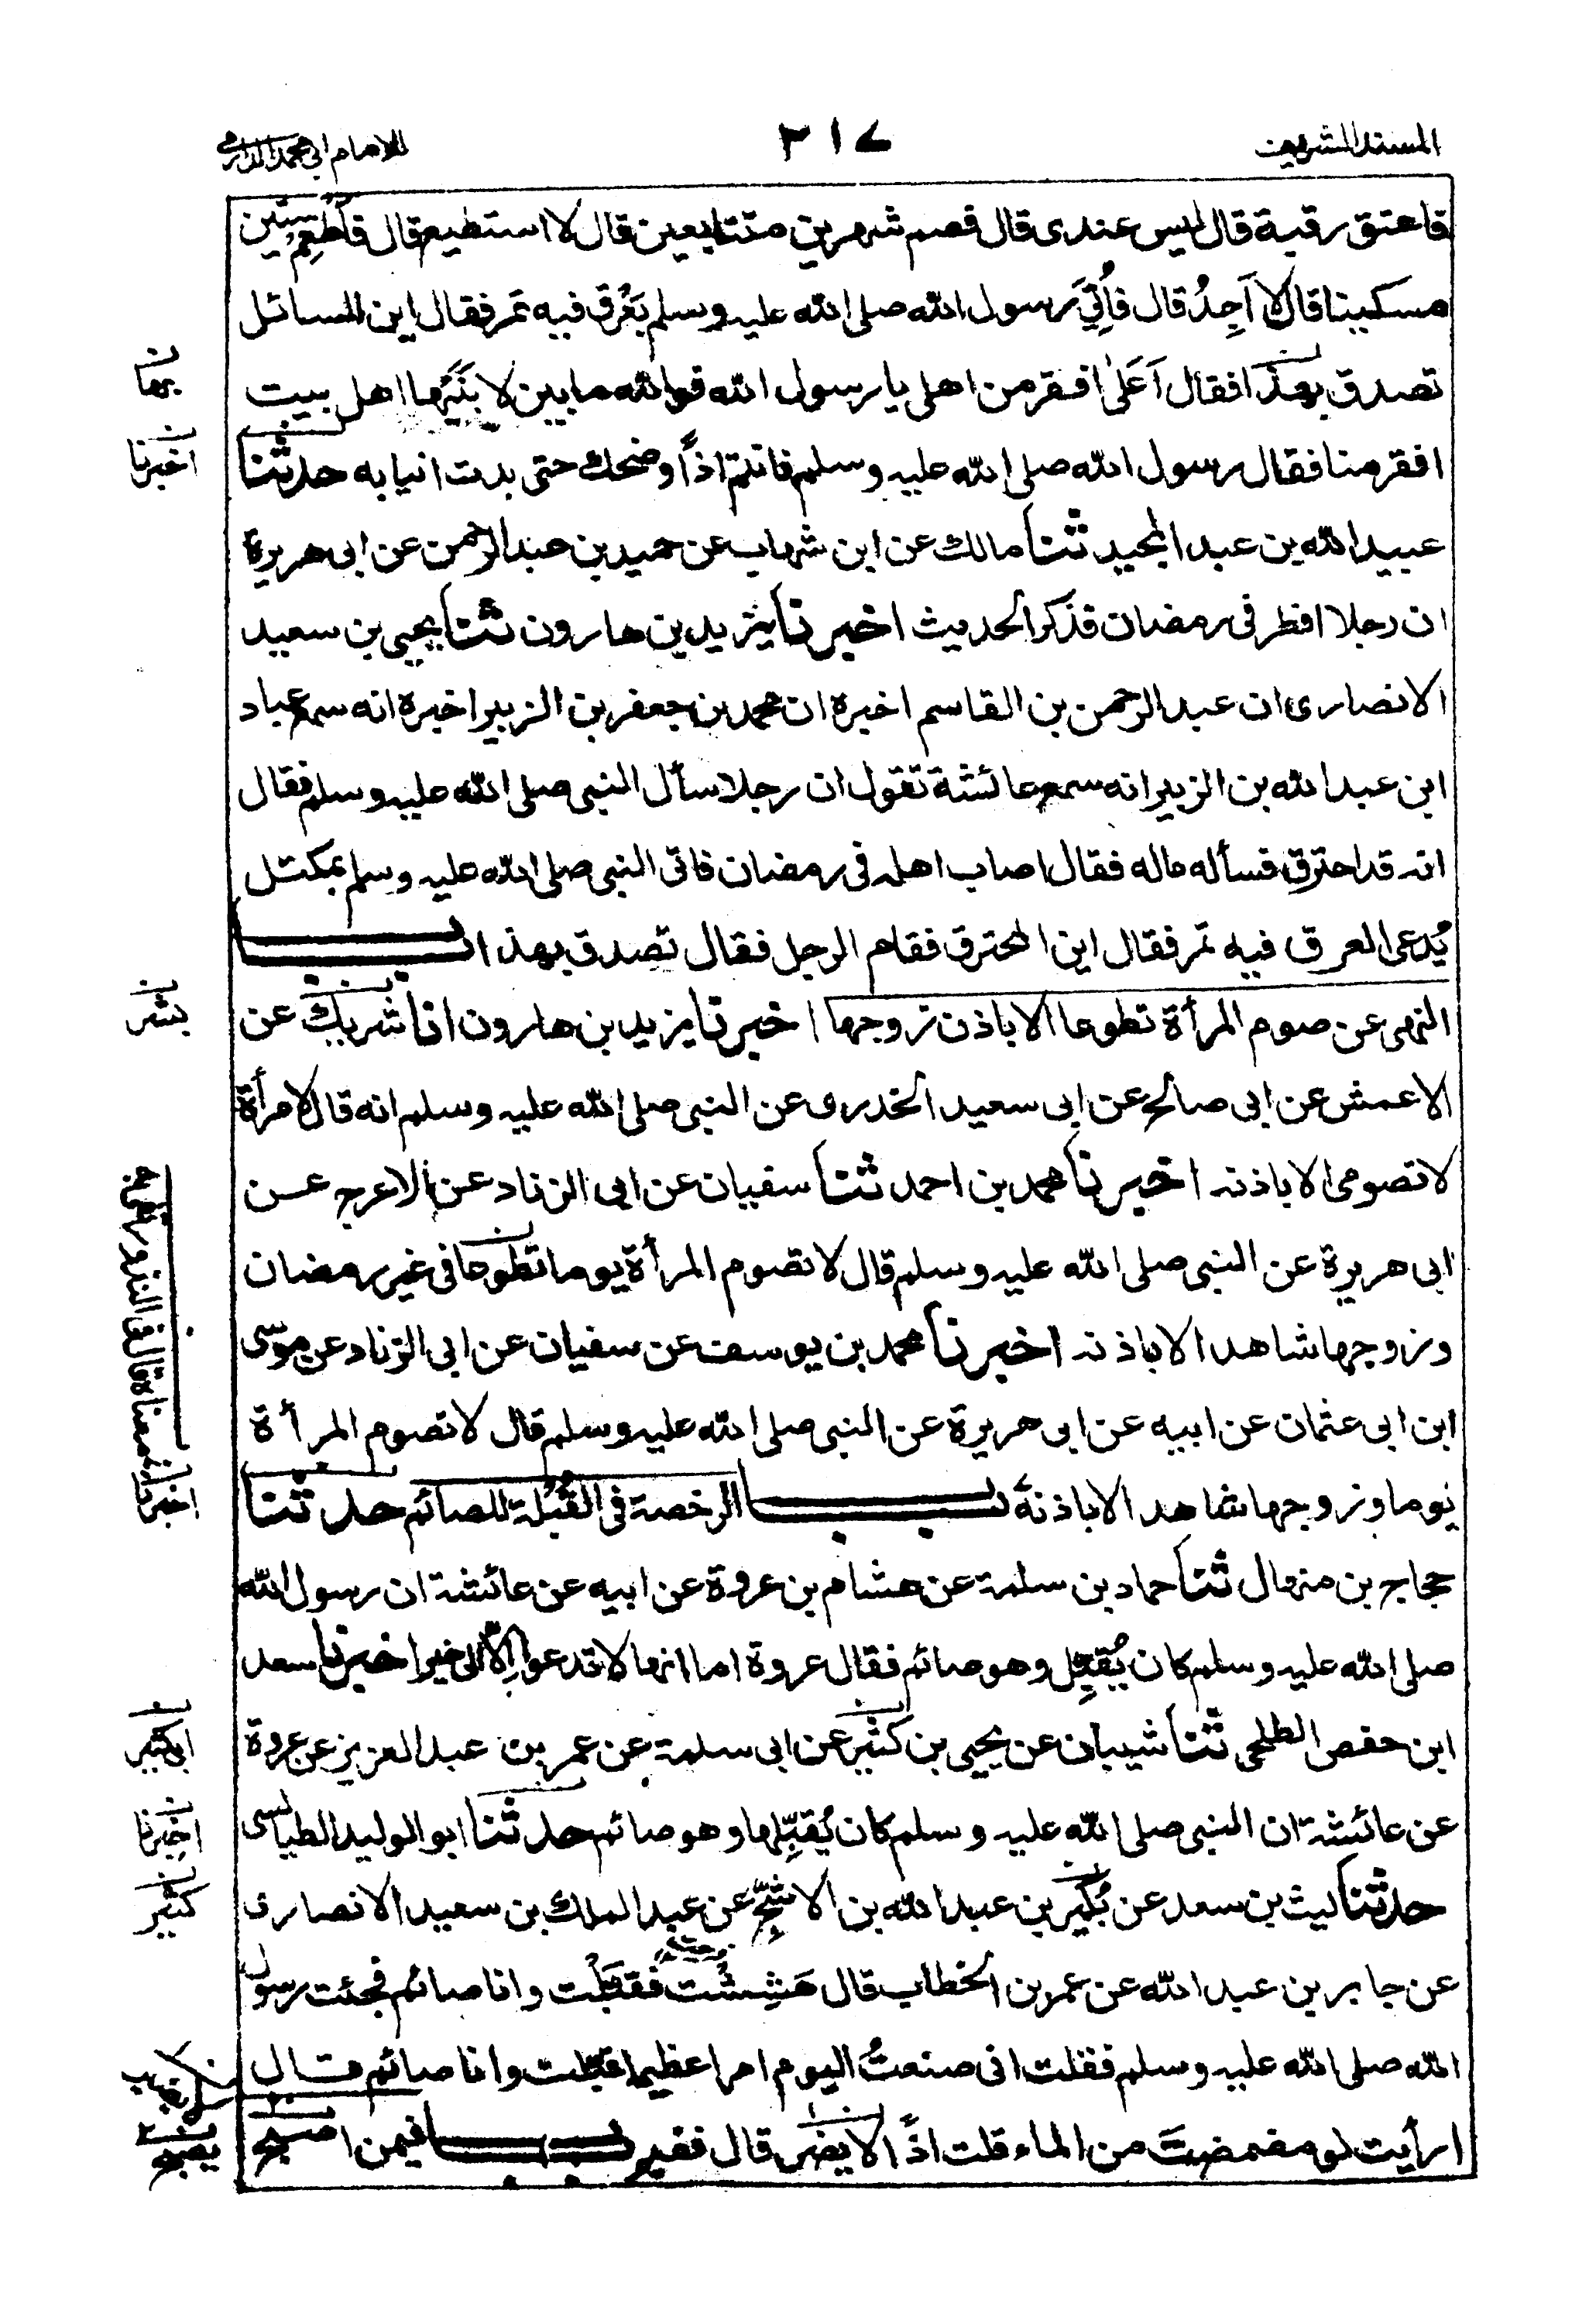 المسند الشريف
٣١٧
للامام ابى محمد الدارمى
فاعتق رقبة قال ليس عندى قال فصم شهرين متتابعين قال لا استطيع قال فأطعِم ستين
مسكينا قال لا أجِدُ قال فأُتِيَ رسول الله صلى الله عليه وسلم بعَرَق فيه تمر فقال اين السائل
تصدق بهذا فقال أعَلى افقر من اهلى يا رسول الله فوالله ما بين لابتَيْها اهل بيت
بها
افقر منا فقال رسول الله صلى الله عليه وسلم فانتم اذًا وضحك حتى بدت انيابه حدثنا
اخبرنا
عبيد الله بن عبد المجيد ثنا مالك عن ابن شهاب عن حميد بن عبد الرحمن عن ابى هريرة
ان رجلا افطر فى رمضان فذكر الحديث اخبرنا يزيد بن هارون ثنا يحيى بن سعيد
الانصارى ان عبد الرحمن بن القاسم اخبره ان محمد بن جعفر بن الزبير اخبره انه سمع عباد
ابن عبد الله بن الزبير انه سمع عائشة تقول ان رجلا سأل النبى صلى الله عليه وسلم فقال
انه قد احترق فسأله ماله فقال اصاب اهله فى رمضان فاتى النبى صلى الله عليه وسلم بمكتل
يُدعى العرق فيه تمر فقال اين المحترق فقام الرجل فقال تصدق بهذا باب
النهى عن صوم المرأة تطوعا الا باذن زوجها اخبرنا يزيد بن هارون انا شريك عن
بشر
الاعمش عن ابى صالح عن ابى سعيد الخدرى عن النبى صلى الله عليه وسلم انه قال لامرأة
لا تصومى الا باذنه اخبرنا محمد بن احمد ثنا سفيان عن ابى الزناد عن الاعرج عن
ابى هريرة عن النبى صلى الله عليه وسلم قال لا تصوم المرأة يوما تطوعا فى غير رمضان
وزوجها شاهد الا باذنه اخبرنا محمد بن يوسف عن سفيان عن ابى الزناد عن موسى
ابن ابى عثمان عن ابيه عن ابى هريرة عن النبى صلى الله عليه وسلم قال لا تصوم المرأة
يوما وزوجها شاهد الا باذنه باب الرخصة فى القُبْلة للصائم حدثنا
اخبرنا
حجاج بن منهال ثنا حماد بن سلمة عن هشام بن عروة عن ابيه عن عائشة ان رسول الله
صلى الله عليه وسلم كان يُقبِّل وهو صائم فقال عروة اما انها لا تدعو إلّا الى خير اخبرنا سعد
ابن حفص الطلحى ثنا شيبان عن يحيى بن كثير عن ابى سلمة عن عمر بن عبد العزيز عن عروة
ابى كثير
عن عائشة ان النبى صلى الله عليه وسلم كان يُقبِّلها وهو صائم حدثنا ابو الوليد الطيالسى
اخبرنا
حدثنا ليث بن سعد عن بُكَير بن عبد الله بن الاشجّ عن عبد الملك بن سعيد الانصارى
كثير
عن جابر بن عبد الله عن عمر بن الخطاب قال هَشِشْت فقبّلت وانا صائم فجئت رسول
الله صلى الله عليه وسلم فقلت انى صنعتُ اليوم امرا عظيما قبّلت وانا صائم قال
ارأيت لو مضمضتَ من الماء قلت اذًا لا يضر قال ففيم باب فيمن اصبح
يصبح